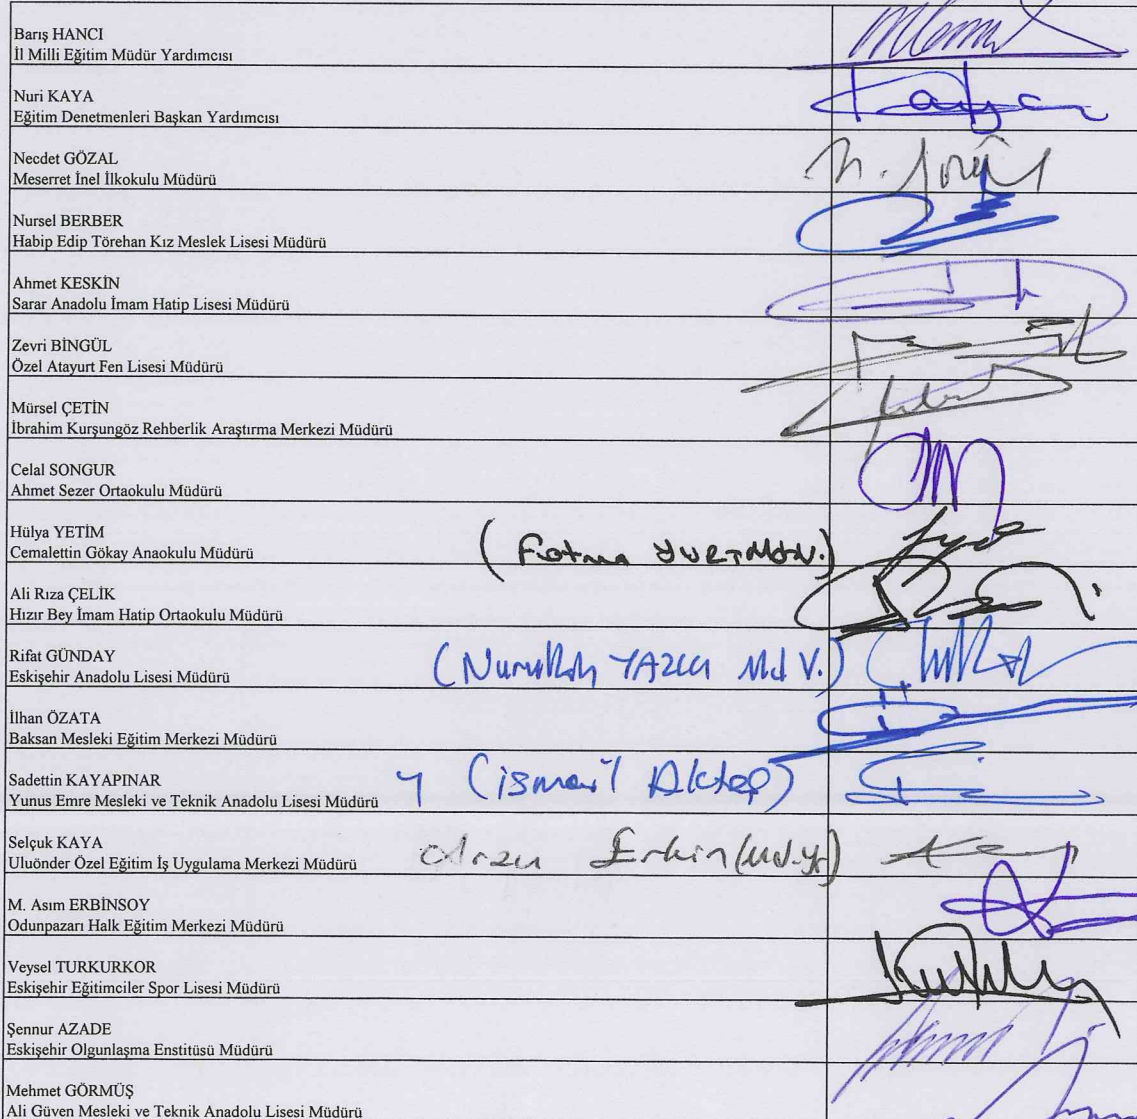 Barış HANCI
İl Milli Eğitim Müdür Yardımcısı
Nuri KAYA
Eğitim Denetmenleri Başkan Yardımcısı
Necdet GÖZAL
Meserret İnel İlkokulu Müdürü
Nursel BERBER
Habip Edip Törehan Kız Meslek Lisesi Müdürü
Ahmet KESKİN
Sarar Anadolu İmam Hatip Lisesi Müdürü
Zevri BİNGÜL
Özel Atayurt Fen Lisesi Müdürü
Mürsel ÇETİN
İbrahim Kurşungöz Rehberlik Araştırma Merkezi Müdürü
Celal SONGUR
Ahmet Sezer Ortaokulu Müdürü
Hülya YETİM
Cemalettin Gökay Anaokulu Müdürü (Fatma
Ali Rıza ÇELİK
Hızır Bey İmam Hatip Ortaokulu Müdürü
Rifat GÜNDAY
Eskişehir Anadolu Lisesi Müdürü (Nurullah YAZICI Md V.)
İlhan ÖZATA
Baksan Mesleki Eğitim Merkezi Müdürü
Sadettin KAYAPINAR
Yunus Emre Mesleki ve Teknik Anadolu Lisesi Müdürü (ismail Aktaş)
Selçuk KAYA
Uluönder Özel Eğitim İş Uygulama Merkezi Müdürü Arzu Erkin (Md.Yr)
M. Asım ERBİNSOY
Odunpazarı Halk Eğitim Merkezi Müdürü
Veysel TURKURKOR
Eskişehir Eğitimciler Spor Lisesi Müdürü
Şennur AZADE
Eskişehir Olgunlaşma Enstitüsü Müdürü
Mehmet GÖRMÜŞ
Ali Güven Mesleki ve Teknik Anadolu Lisesi Müdürü